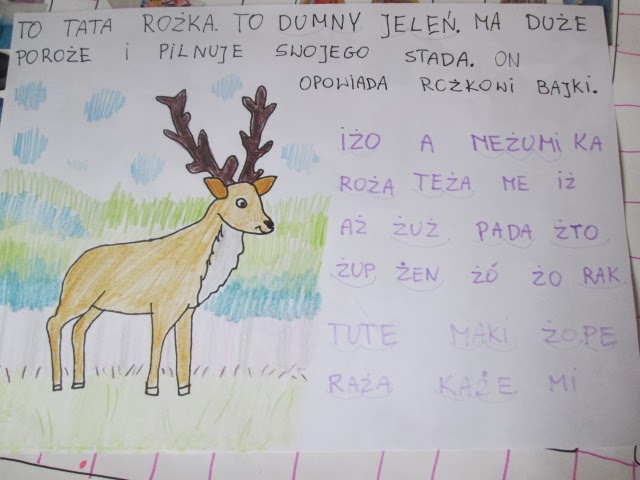 TO TATA ROŻKA. TO DUMNY JELEŃ. MA DUŻE
POROŻE I PILNUJE SWOJEGO STADA. ON
OPOWIADA ROŻKOWI BAJKI.
IŻO A NEŻUMI KA
ROŻA TEŻA ME IŻ
AŻ ŻUŻ PADA ŻTO
ŻUP ŻEN ŻÓ ŻO RAK
TUTE MAKI ŻOPE
RAŻA KAŻE MI